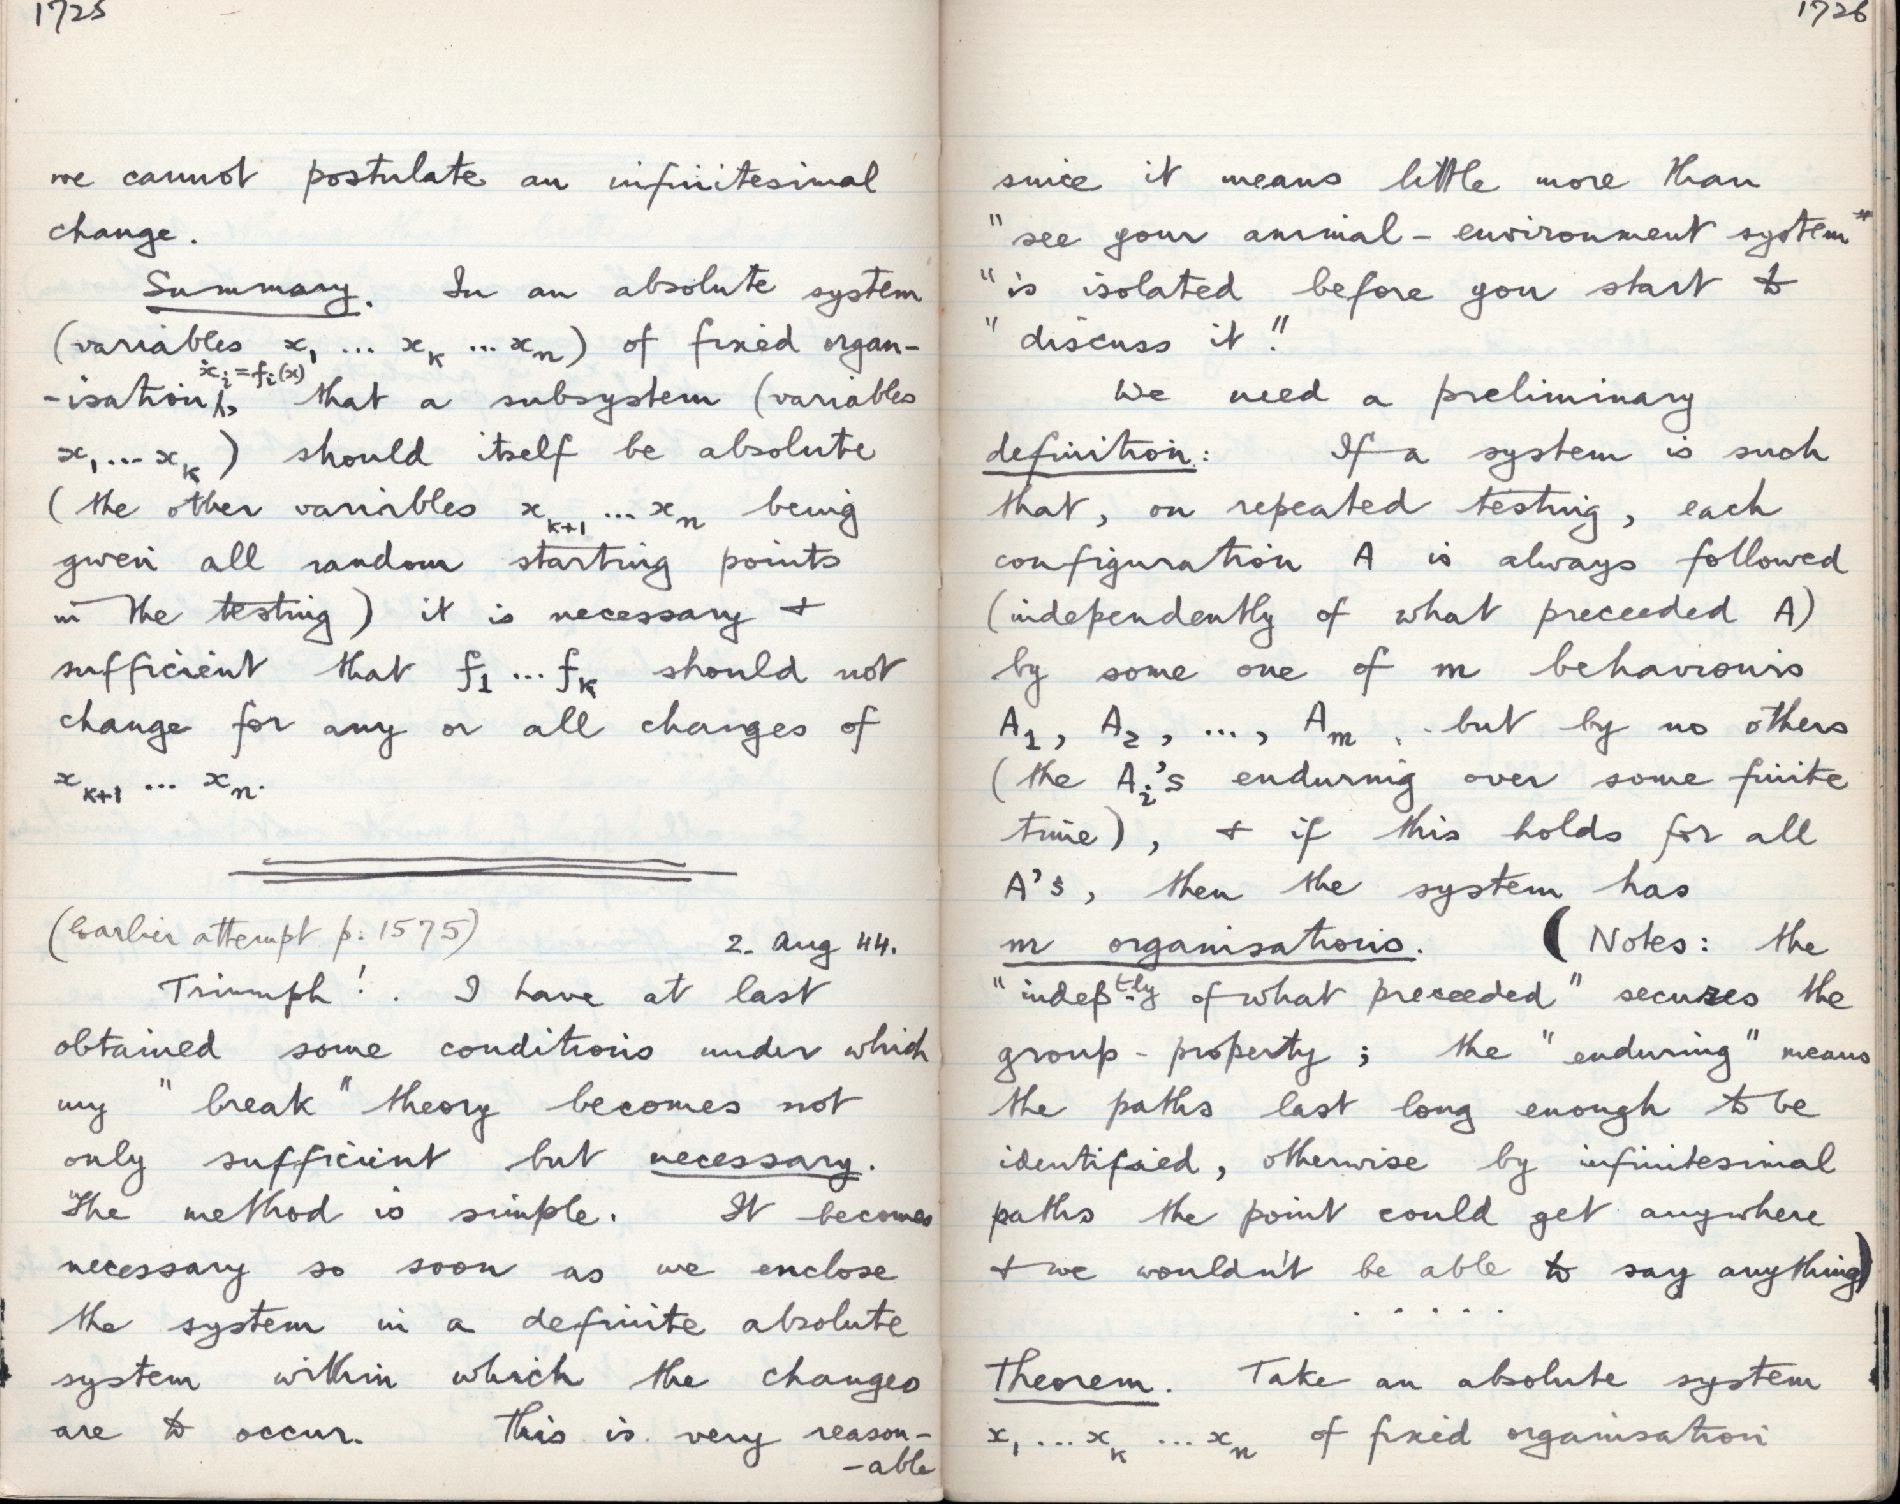 1725
we cannot postulate an infinitesimal
change.
Summary. In an absolute system
(variables x₁ ... xₖ ... xₙ) of fixed organ-
ẋᵢ = fᵢ(x)
-isation, that a subsystem (variables
x₁ ... xₖ) should itself be absolute
(the other variables xₖ₊₁ ... xₙ being
given all random starting points
in the testing) it is necessary +
sufficient that f₁ ... fₖ should not
change for any or all changes of
xₖ₊₁ ... xₙ.
(Earlier attempt p. 1575)
2. Aug 44.
Triumph!. I have at last
obtained some conditions under which
my "break" theory becomes not
only sufficient but necessary.
The method is simple. It becomes
necessary so soon as we enclose
the system in a definite absolute
system within which the changes
are to occur. This is very reason-
-able
1726
since it means little more than
"see your animal-environment system"
"is isolated before you start to
"discuss it!"
We need a preliminary
definition: If a system is such
that, on repeated testing, each
configuration A is always followed
(independently of what preceeded A)
by some one of m behaviours
A₁, A₂, ..., Aₘ, but by no others
(the Aᵢ's enduring over some finite
time), + if this holds for all
A's, then the system has
m organisations. (Notes: the
"indepᵗˡʸ of what preceeded" secures the
group-property; the "enduring" means
the paths last long enough to be
identified, otherwise by infinitesimal
paths the point could get anywhere
+ we wouldn't be able to say anything)
. . . . .
Theorem. Take an absolute system
x₁ ... xₖ ... xₙ of fixed organisation